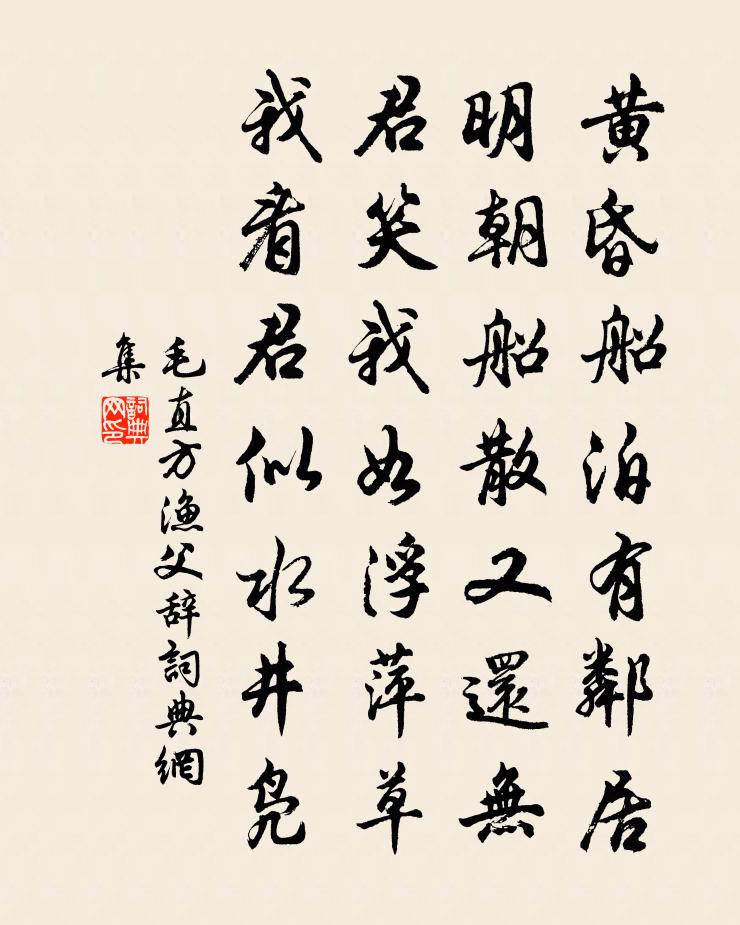 黄昏船泊有鄰居
明朝船散又還無
君笑我如浮萍草
我看君似水井凫
毛直方漁父辞詞典網
集
詞典
网印